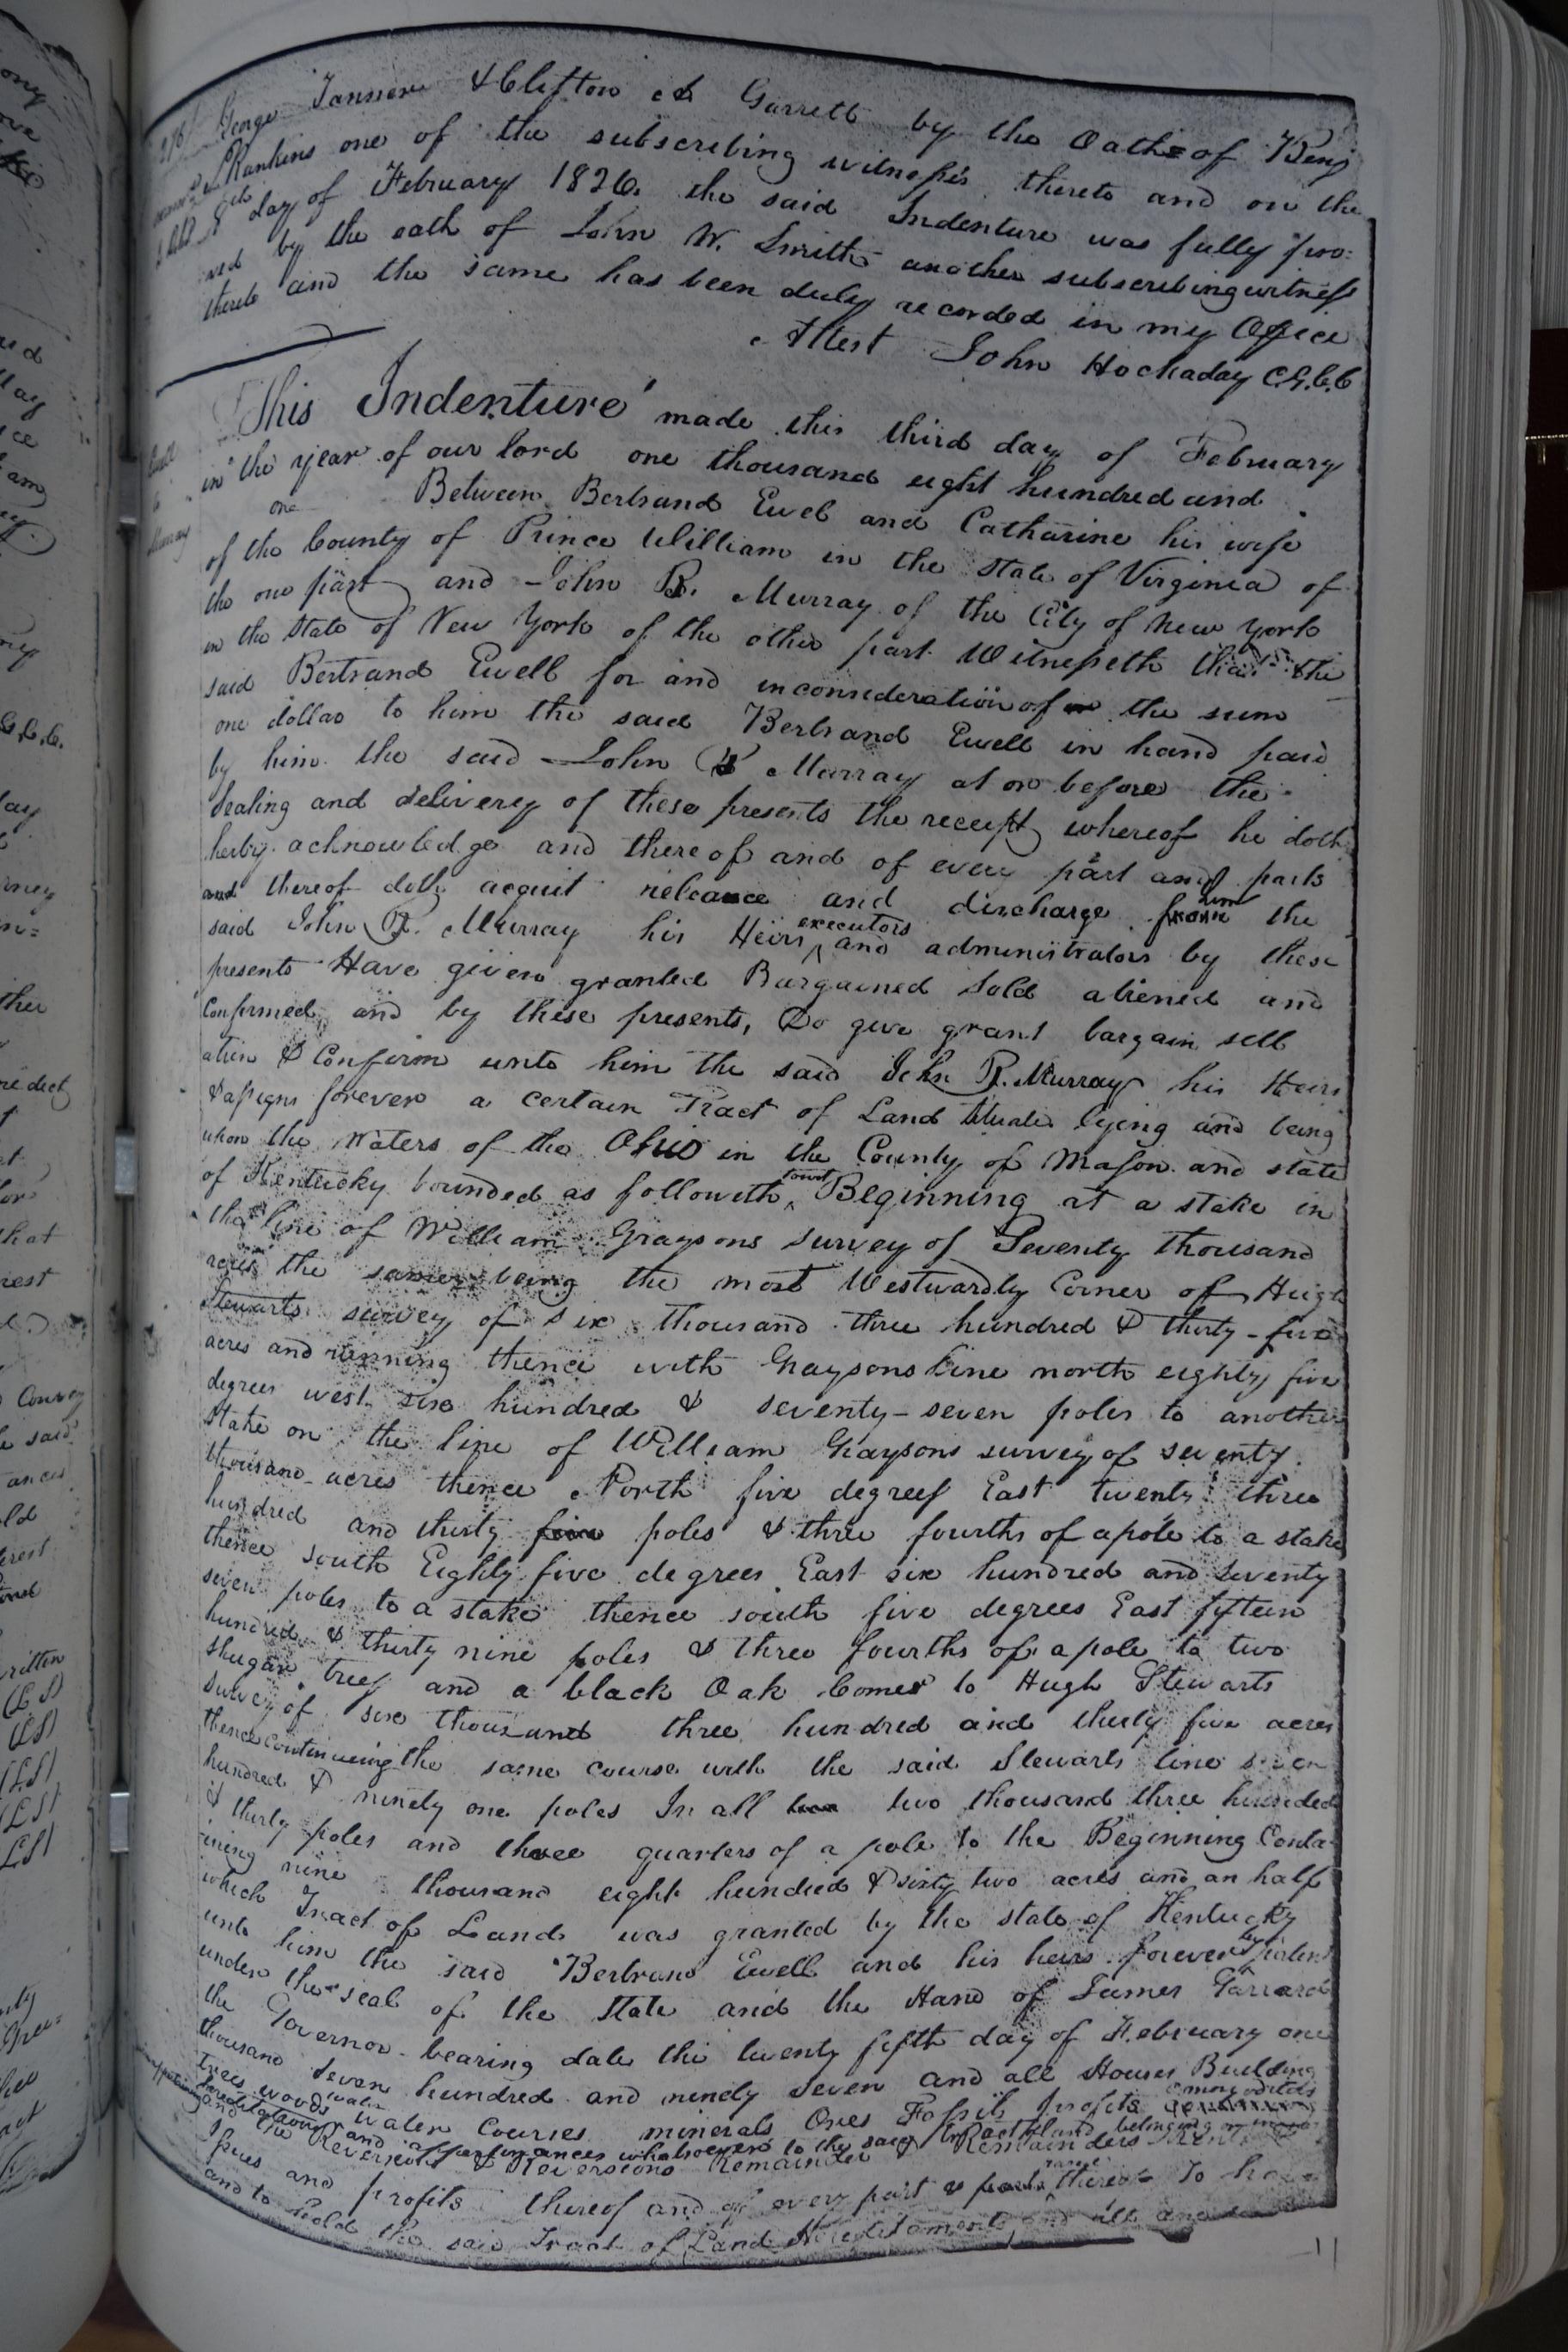 George Tanner & Clifton A Garrett by the Oath of Benj
Rankins one of the subscribing witness's thereto and on the
8th day of February 1826. the said Indenture was fully pro=
ved by the oath of John W. Smith another subscribing witness
thereto and the same has been duly recorded in my Office
Attest John Hockaday C.G.C.C
This Indenture made this third day of February
in the year of our lord one thousand eight hundred and
one Between Bertrand Ewell and Catharine his wife
of the County of Prince William in the State of Virginia of
the one part and John R. Murray of the City of New York
in the State of New York of the other part Witnesseth that the
said Bertrand Ewell for and in consideration of the sum
one dollar to him the said Bertrand Ewell in hand paid
by him the said John R Murray at or before the
Sealing and delivery of these presents the receipt whereof he doth
herby acknowledge and thereof and of every part and parts
and thereof doth acquit releace and discharge from him the
said John R. Murray his Heirs executors and administrators by these
presents Have given granted Bargained Sold aliened and
Confirmed and by these presents, Do give grant bargain sell
alien & Confirm unto him the said John R. Murray his Heirs
& assigns forever a certain Tract of Land Situate lying and being
upon the Waters of the Ohio in the County of Mason and state
of Kentucky bounded as followeth towit Beginning at a stake in
the line of William Graysons survey of Seventy thousand
acres the same being the most Westwardly Corner of Hugh
Stewarts survey of six thousand three hundred & thirty-five
acres and running thence with Graysons line north eighty five
degrees west six hundred & seventy-seven poles to another
Stake on the line of William Graysons survey of seventy
thousand acres thence North five degrees East twenty three
hundred and thirty five poles & three fourths of a pole to a stake
thence south Eighty five degrees East six hundred and Seventy
seven poles to a stake thence south five degrees East fifteen
hundred & thirty nine poles & three fourths of a pole to two
shugar trees and a black Oak Corner to Hugh Stewarts
Survey of six thousand three hundred and thirty five acres
thence continueing the same course with the said Stewarts line seven
hundred & ninety one poles In all two thousand three hundred
& thirty poles and three quarters of a pole to the Beginning Conta-
ining nine thousand eight hundred & sixty two acres and an half
which Tract of Land was granted by the state of Kentucky
unto him the said Bertrand Ewell and his heirs forever by patent
under the seal of the State and the Hand of James Garrard
the Governor bearing date the twenty fifth day of February one
thousand Seven hundred and ninety Seven and all Houses Building
Trees woods water Water Courses minerals Ores Fossils profits commodities
hereditations and appertinances whatsoever to the said Tract of land belonging or
and the Reversion & Reversions Remainder & Remainders
Issues and profits thereof and of every part & parcel thereof To have
and to hold the said Tract of Land Hereditaments and all and